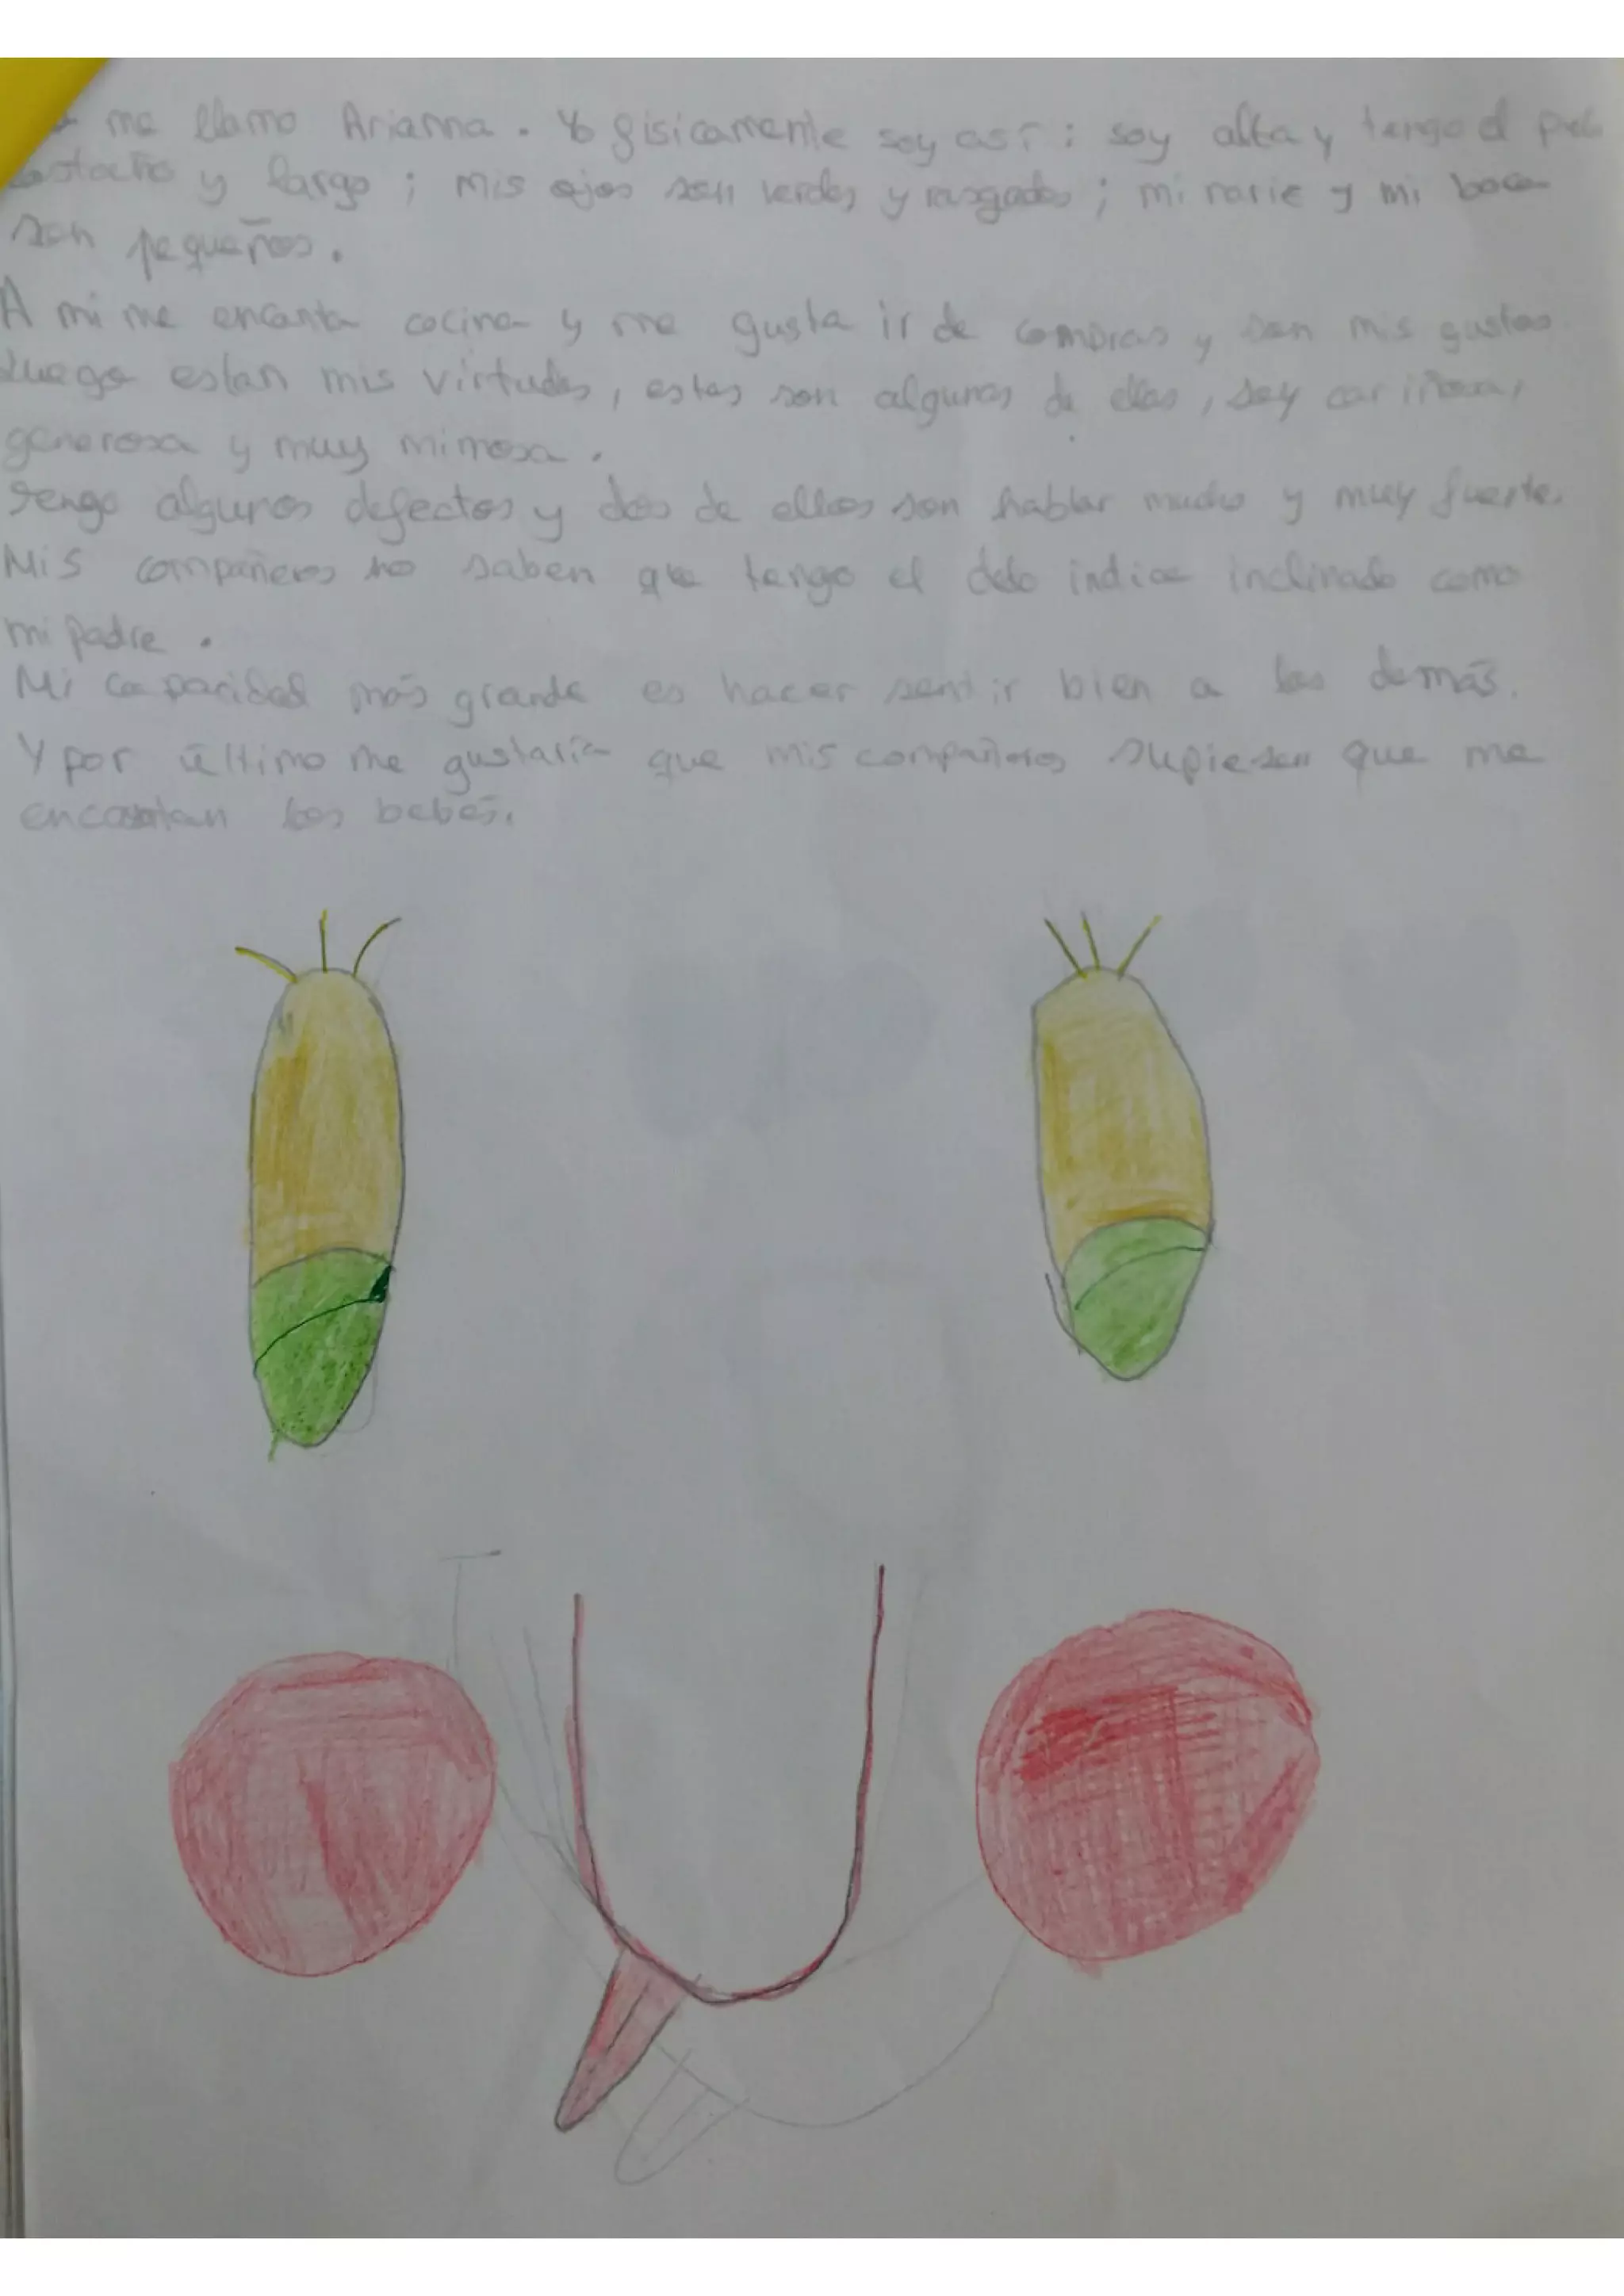 me llamo Arianna. Yo fisicamente soy así: soy alta y tengo el pelo
castaño y largo; mis ojos son verdes y rasgados; mi narie y mi boca
son pequeños.
A mi me encanta cocina y me gusta ir de compras y son mis gustos
Luego estan mis virtudes, estas son algunas de ellas, soy cariñosa,
generosa y muy mimosa.
Tengo algunos defectos y dos de ellos son hablar mucho y muy fuerte.
Mis compañeros no saben que tengo el dedo indice inclinado como
mi padre.
Mi capacidad más grande es hacer sentir bien a los demás.
Y por último me gustaría que mis compañeros supiesen que me
encantan los bebés.